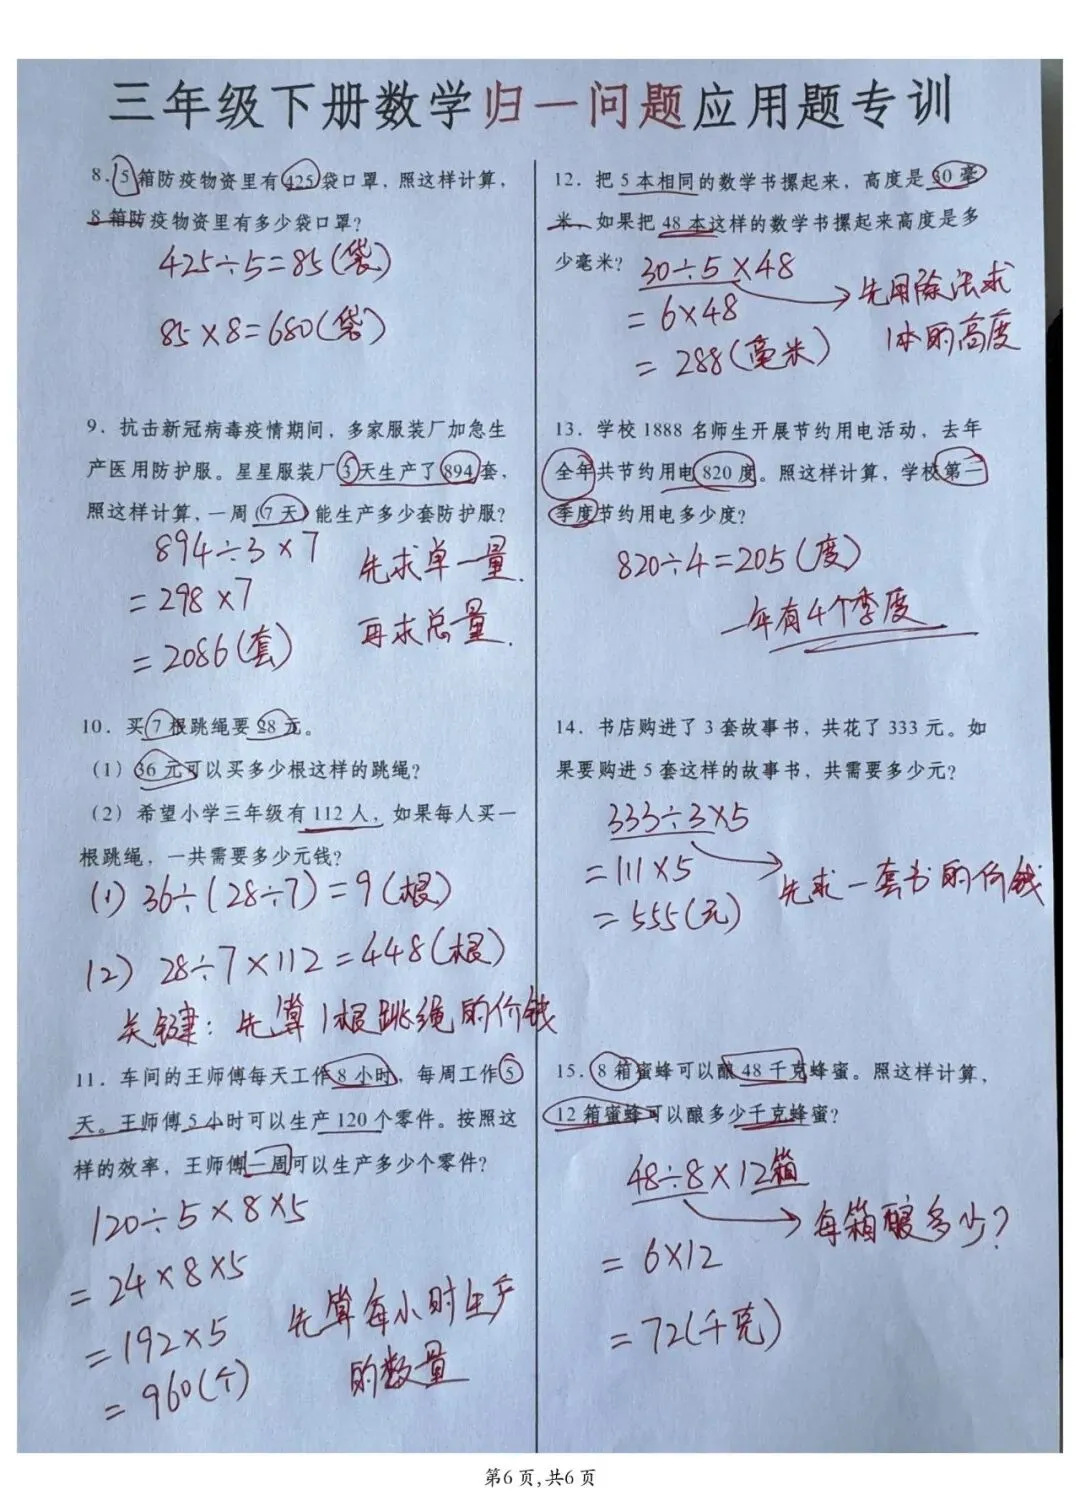 三年级下册数学归一问题应用题专训
8. 5箱防疫物资里有425袋口罩，照这样计算，
8箱防疫物资里有多少袋口罩？
425÷5=85(袋)
85×8=680(袋)
9. 抗击新冠病毒疫情期间，多家服装厂加急生
产医用防护服。星星服装厂3天生产了894套，
照这样计算，一周(7天)能生产多少套防护服？
894÷3×7
=298×7
=2086(套)
先求单一量.
再求总量.
10. 买7根跳绳要28元。
(1) 36元可以买多少根这样的跳绳？
(2) 希望小学三年级有112人，如果每人买一
根跳绳，一共需要多少元钱？
(1) 36÷(28÷7)=9(根)
(2) 28÷7×112=448(根)
关键：先算1根跳绳的价钱
11. 车间的王师傅每天工作8小时，每周工作5
天。王师傅5小时可以生产120个零件。按照这
样的效率，王师傅一周可以生产多少个零件？
120÷5×8×5
=24×8×5
=192×5
=960(个)
先算每小时生产
的数量
12. 把5本相同的数学书摞起来，高度是30毫
米，如果把48本这样的数学书摞起来高度是多
少毫米？
30÷5×48
=6×48
=288(毫米)
先用除法求
1本的高度
13. 学校1888名师生开展节约用电活动，去年
全年共节约用电820度。照这样计算，学校第二
季度节约用电多少度？
820÷4=205(度)
一年有4个季度
14. 书店购进了3套故事书，共花了333元。如
果要购进5套这样的故事书，共需要多少元？
333÷3×5
=111×5
=555(元)
先求一套书的价钱
15. 8箱蜜蜂可以酿48千克蜂蜜。照这样计算，
12箱蜜蜂可以酿多少千克蜂蜜？
48÷8×12箱
=6×12
=72(千克)
每箱酿多少？
第6页,共6页